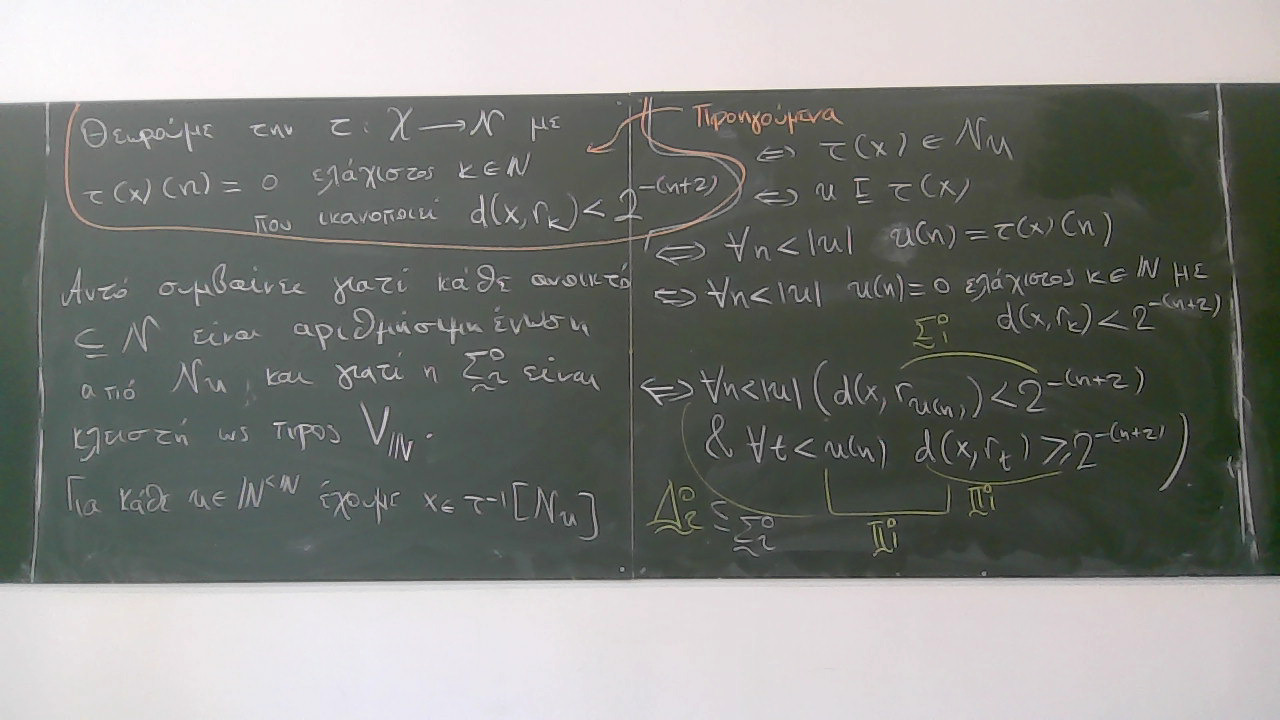 Θεωρούμε την τ : Χ → N με
τ(x)(n) = ο ελάχιστος k ∈ N
που ικανοποιεί d(x, r_k) < 2^{-(n+2)}
Αυτό συμβαίνει γιατί κάθε ανοικτό
⊆ N είναι αριθμήσιμη ένωση
από N_u, και γιατί η Σ^0_2 είναι
κλειστή ως προς V_ℕ.
Για κάθε u ∈ ℕ^{<ℕ} έχουμε x ∈ τ^{-1}[N_u]
Προηγούμενα
⇔ τ(x) ∈ N_u
⇔ u ⊑ τ(x)
⇔ ∀n < |u| u(n) = τ(x)(n)
⇔ ∀n < |u| u(n) = ο ελάχιστος k ∈ ℕ με
d(x, r_k) < 2^{-(n+2)}
Σ^0_1
⇔ ∀n < |u| (d(x, r_{u(n)}) < 2^{-(n+2)}
& ∀t < u(n) d(x, r_t) ⩾ 2^{-(n+2)})
Π^0_1
Δ^0_2 ⊆ Σ^0_2
Π^0_1